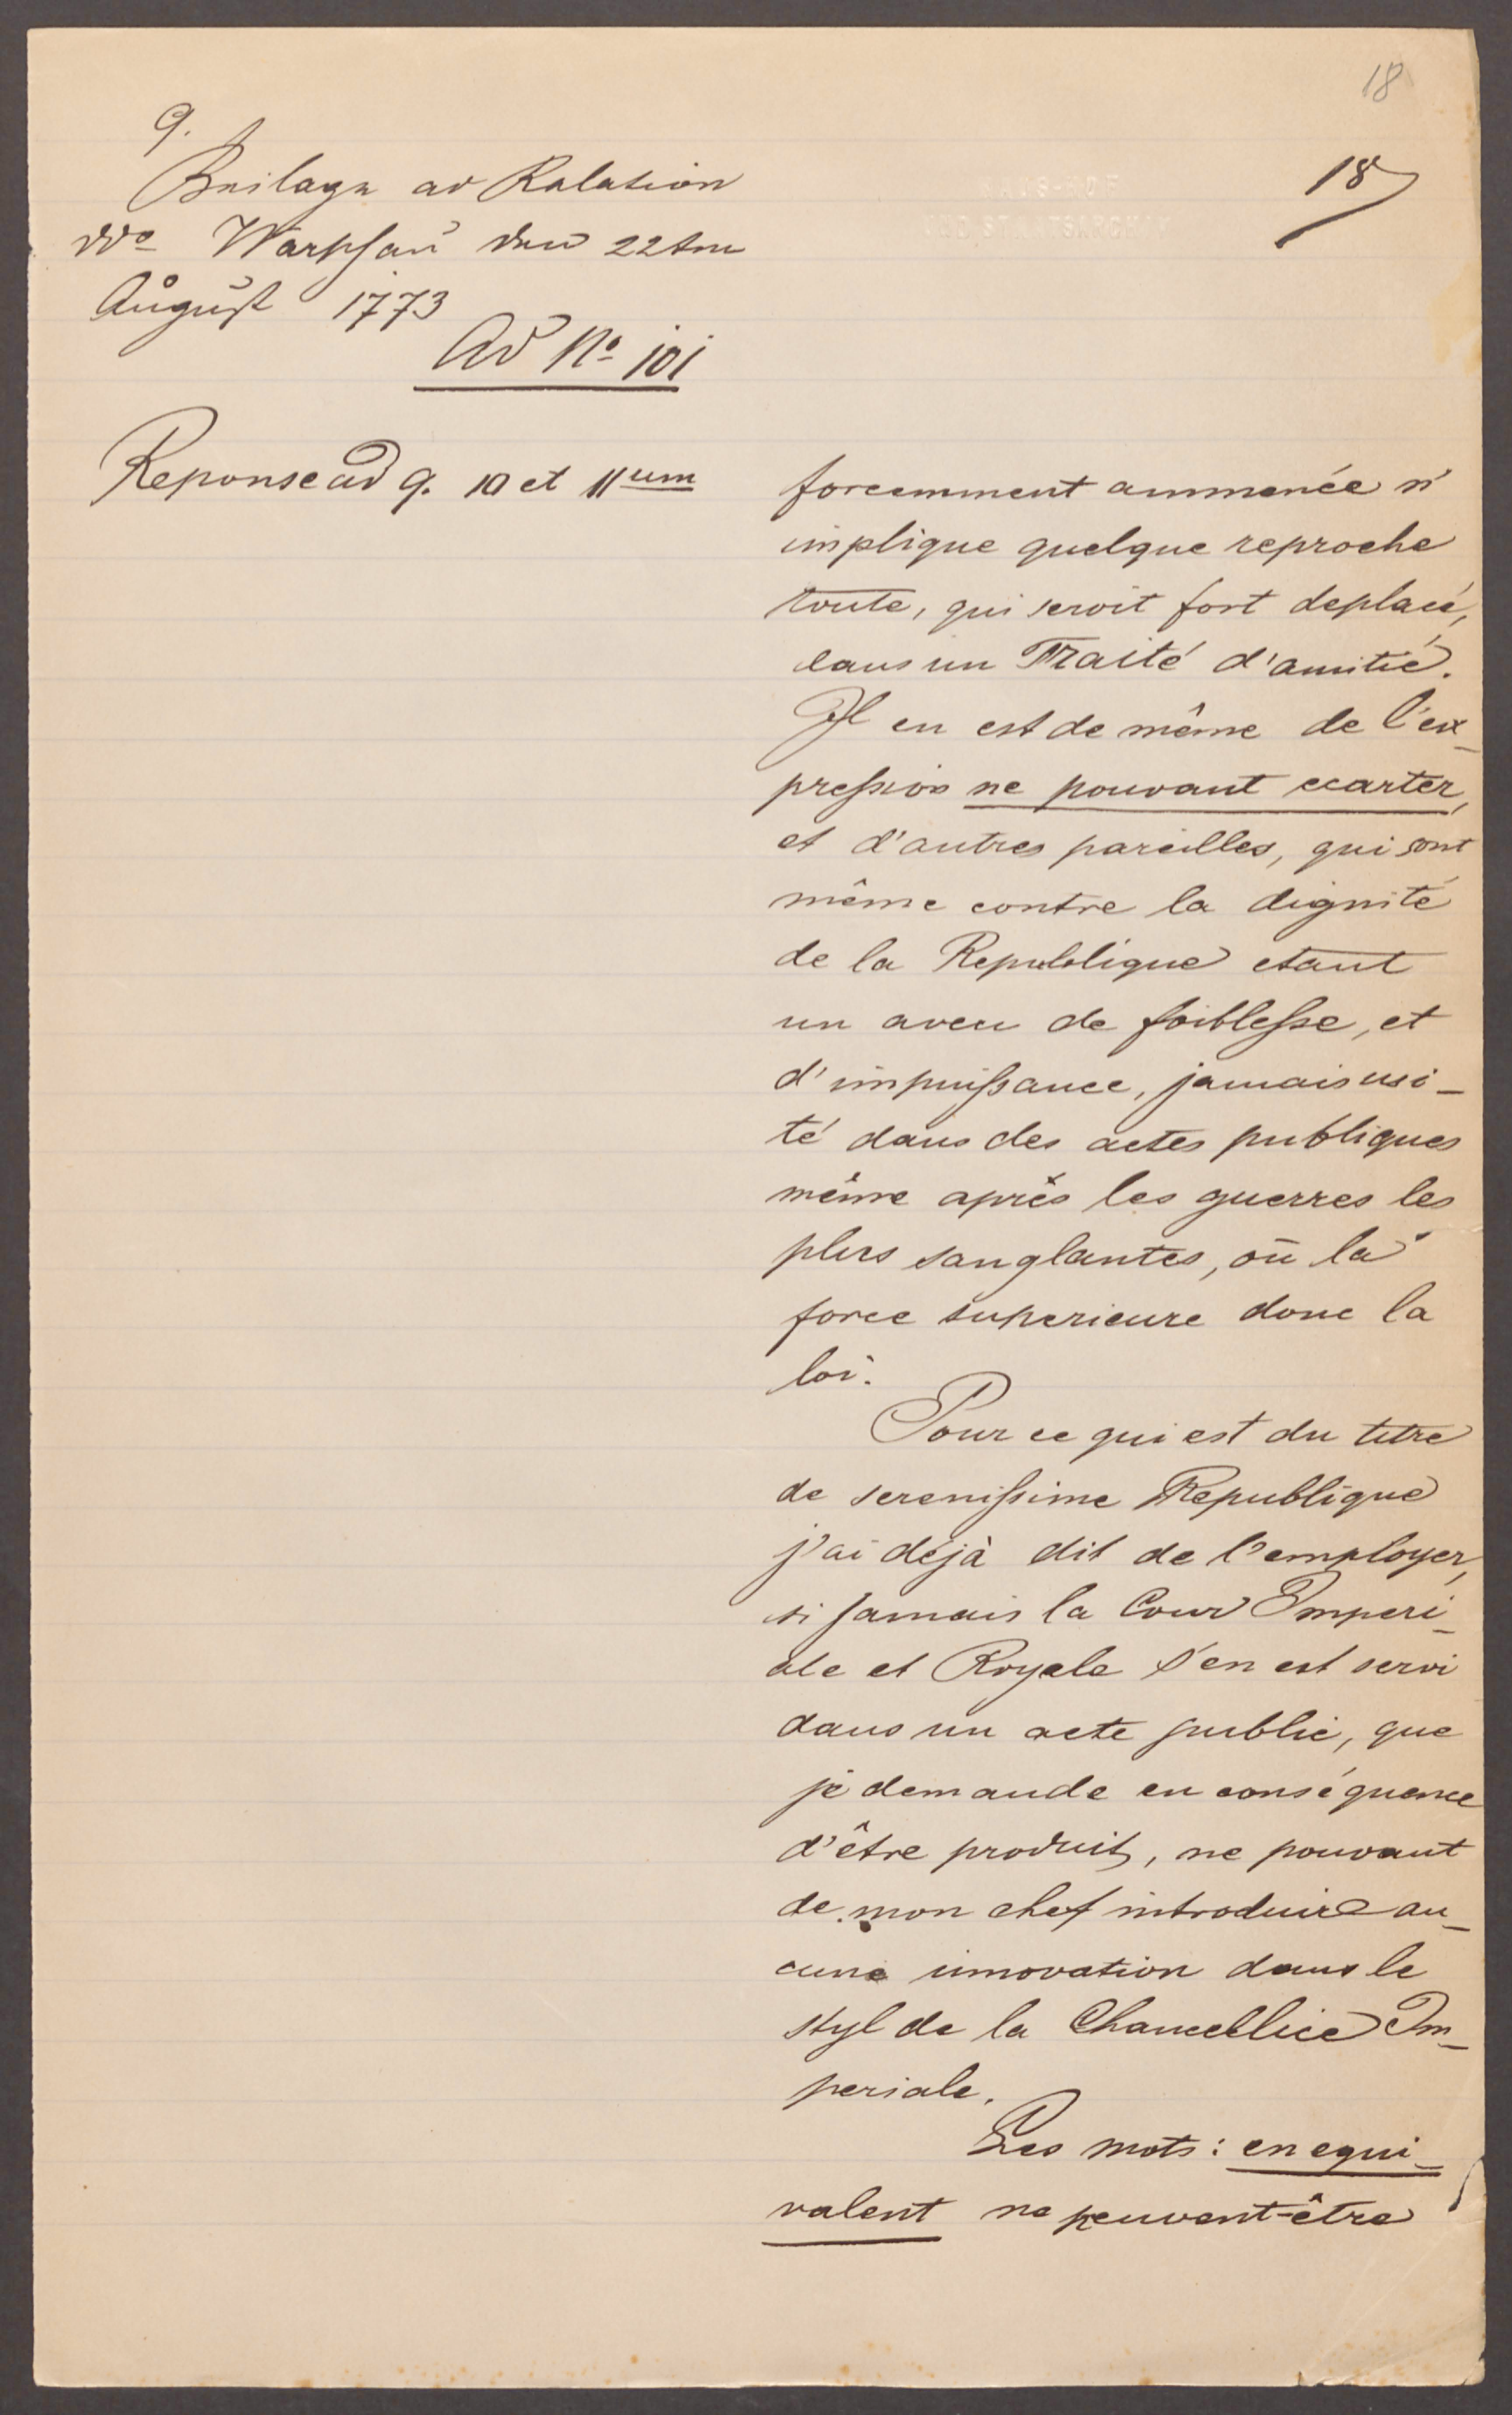 18
18
9.
Beilage ad Relation
ddo Warschau den 22ten
August 1773
Ad No 101
Reponse ad 9. 10 et 11um
forcemment ammenée n'
implique quelque reproche
toute, qui seroit fort deplacé,
dans un Traité d'amitié.
Il en est de même de l'ex-
pression ne pouvant ecarter,
et d'autres pareilles, qui sont
même contre la dignité
de la Republique etant
un aveu de foiblesse, et
d'impuissance, jamais usi-
té dans des actes publiques
même après les guerres les
plus sanglantes, où la
force superieure done la
loi.
Pour ce qui est du titre
de serenissime Republique
j'ai déjà dit de l'employer,
si jamais la Cour Imperi-
ale et Royale s'en est servi
dans un acte public, que
je demande en conséquence
d'être produit, ne pouvant
de mon chef introduire au-
cune innovation dans le
styl de la Chancellice Im-
periale.
Les mots: en equi-
valent ne peuvent-être